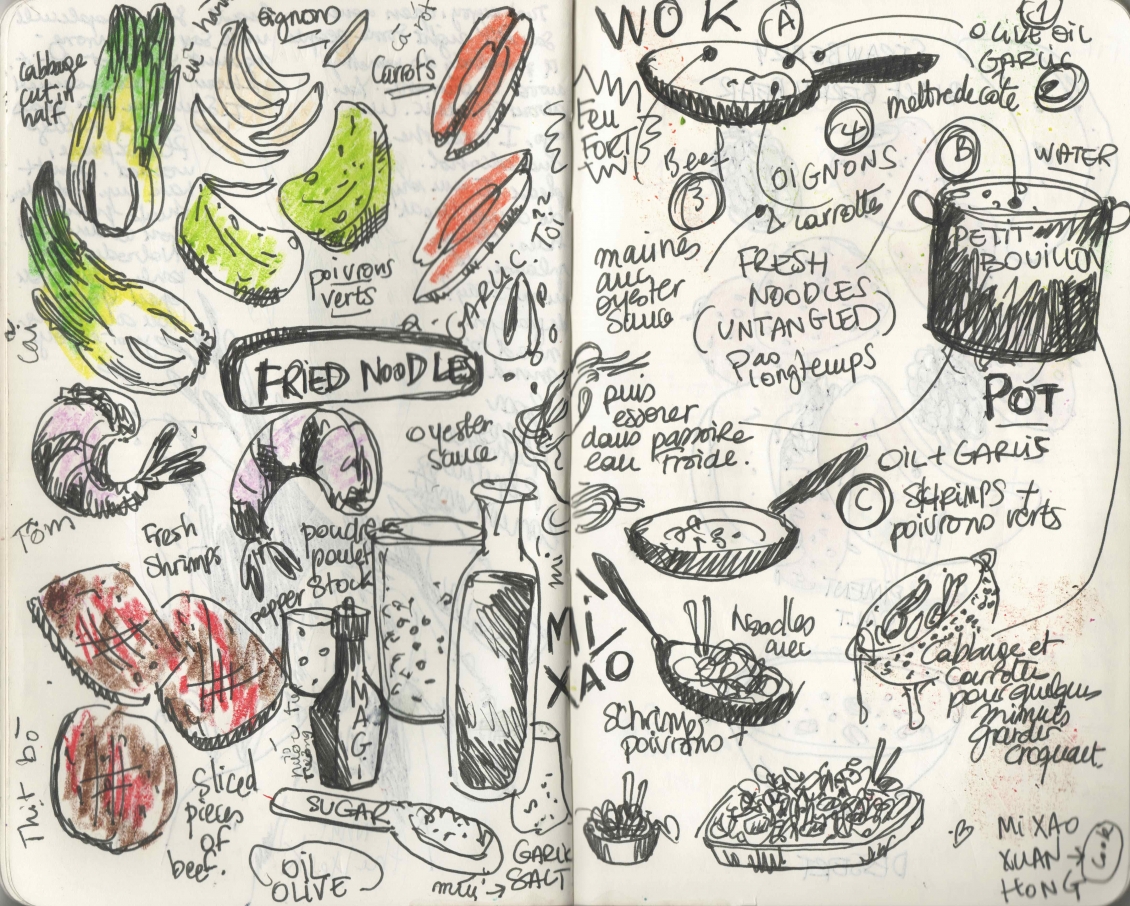 cabbage
cut in
half
oignons
Carrots
cải
poivrons
verts
GARLIC
TỎI
FRIED NOODLES
oyester
sauce
Tôm
Fresh
Shrimps
poudre
poulet
Stock
pepper
MAG
Thịt bò
Sliced
pieces
of
beef.
SUGAR
OIL
OLIVE
GARLIC
SALT
muối
WOK
A
1
OLIVE OIL
GARLIC
2
mettre de coté
Feu
FORT
Beef
3
4
OIGNONS
carrotte
marinés
aux
oyester
sauce
B
WATER
PETIT
BOUILLON
POT
FRESH
NOODLES
(UNTANGLED)
Pas
longtemps
puis
essorer
dans passoire
eau froide.
OIL + GARLIC
C
SCHRIMPS +
poivrons verts
mì
MI
XAO
Noodles
avec
Schrimps +
poivrons
Cabbage et
carrotte
pour quelques
minuts
garder
croquant.
B
Mi XAO
XUAN
HONG
Cook